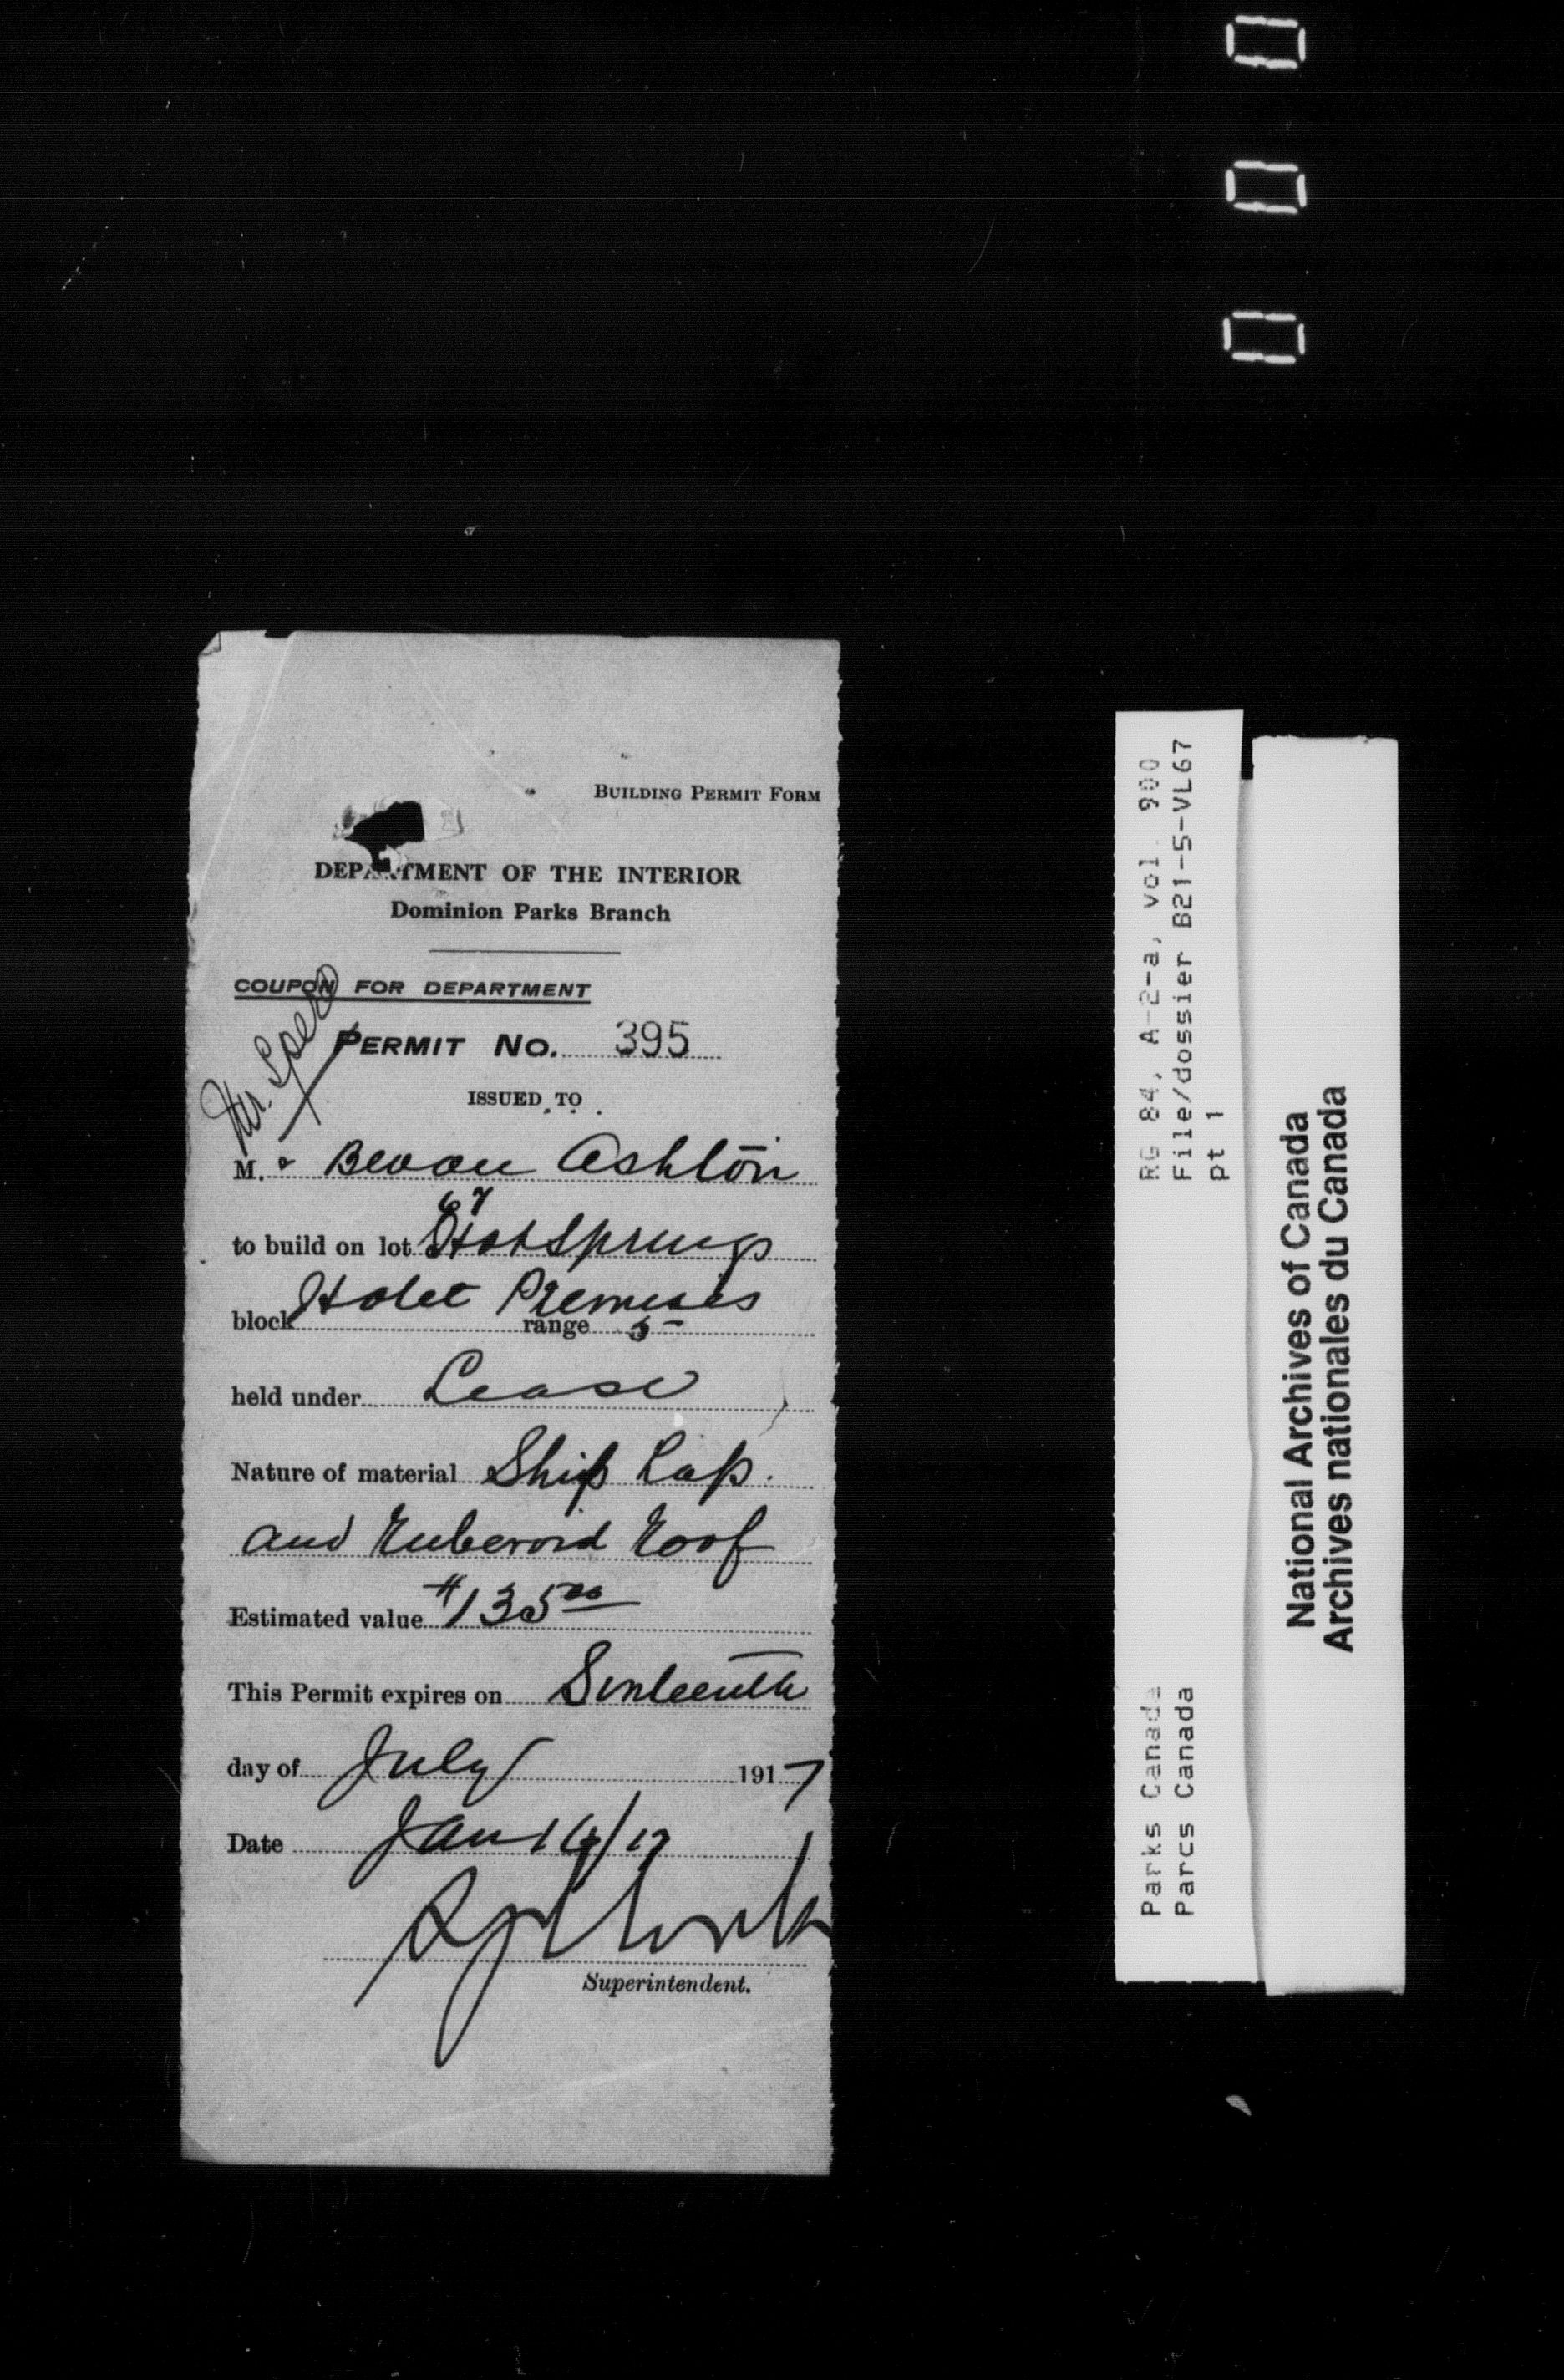 0
0
0
BUILDING PERMIT FORM
DEPARTMENT OF THE INTERIOR
Dominion Parks Branch
COUPON FOR DEPARTMENT
PERMIT No. 395
ISSUED TO
M. Bevan Ashton
67
to build on lot Hot Springs
Hotel Premises
block range 5
held under Lease
Nature of material Ship Lap.
and Ruberoid Roof
Estimated value $135.00
This Permit expires on Sixteenth
day of July 1917
Date Jan 16/17
Superintendent.
RG 84, A-2-a, vol. 900
File/dossier B21-5-VL67
pt 1
Parks Canada
Parcs Canada
National Archives of Canada
Archives nationales du Canada